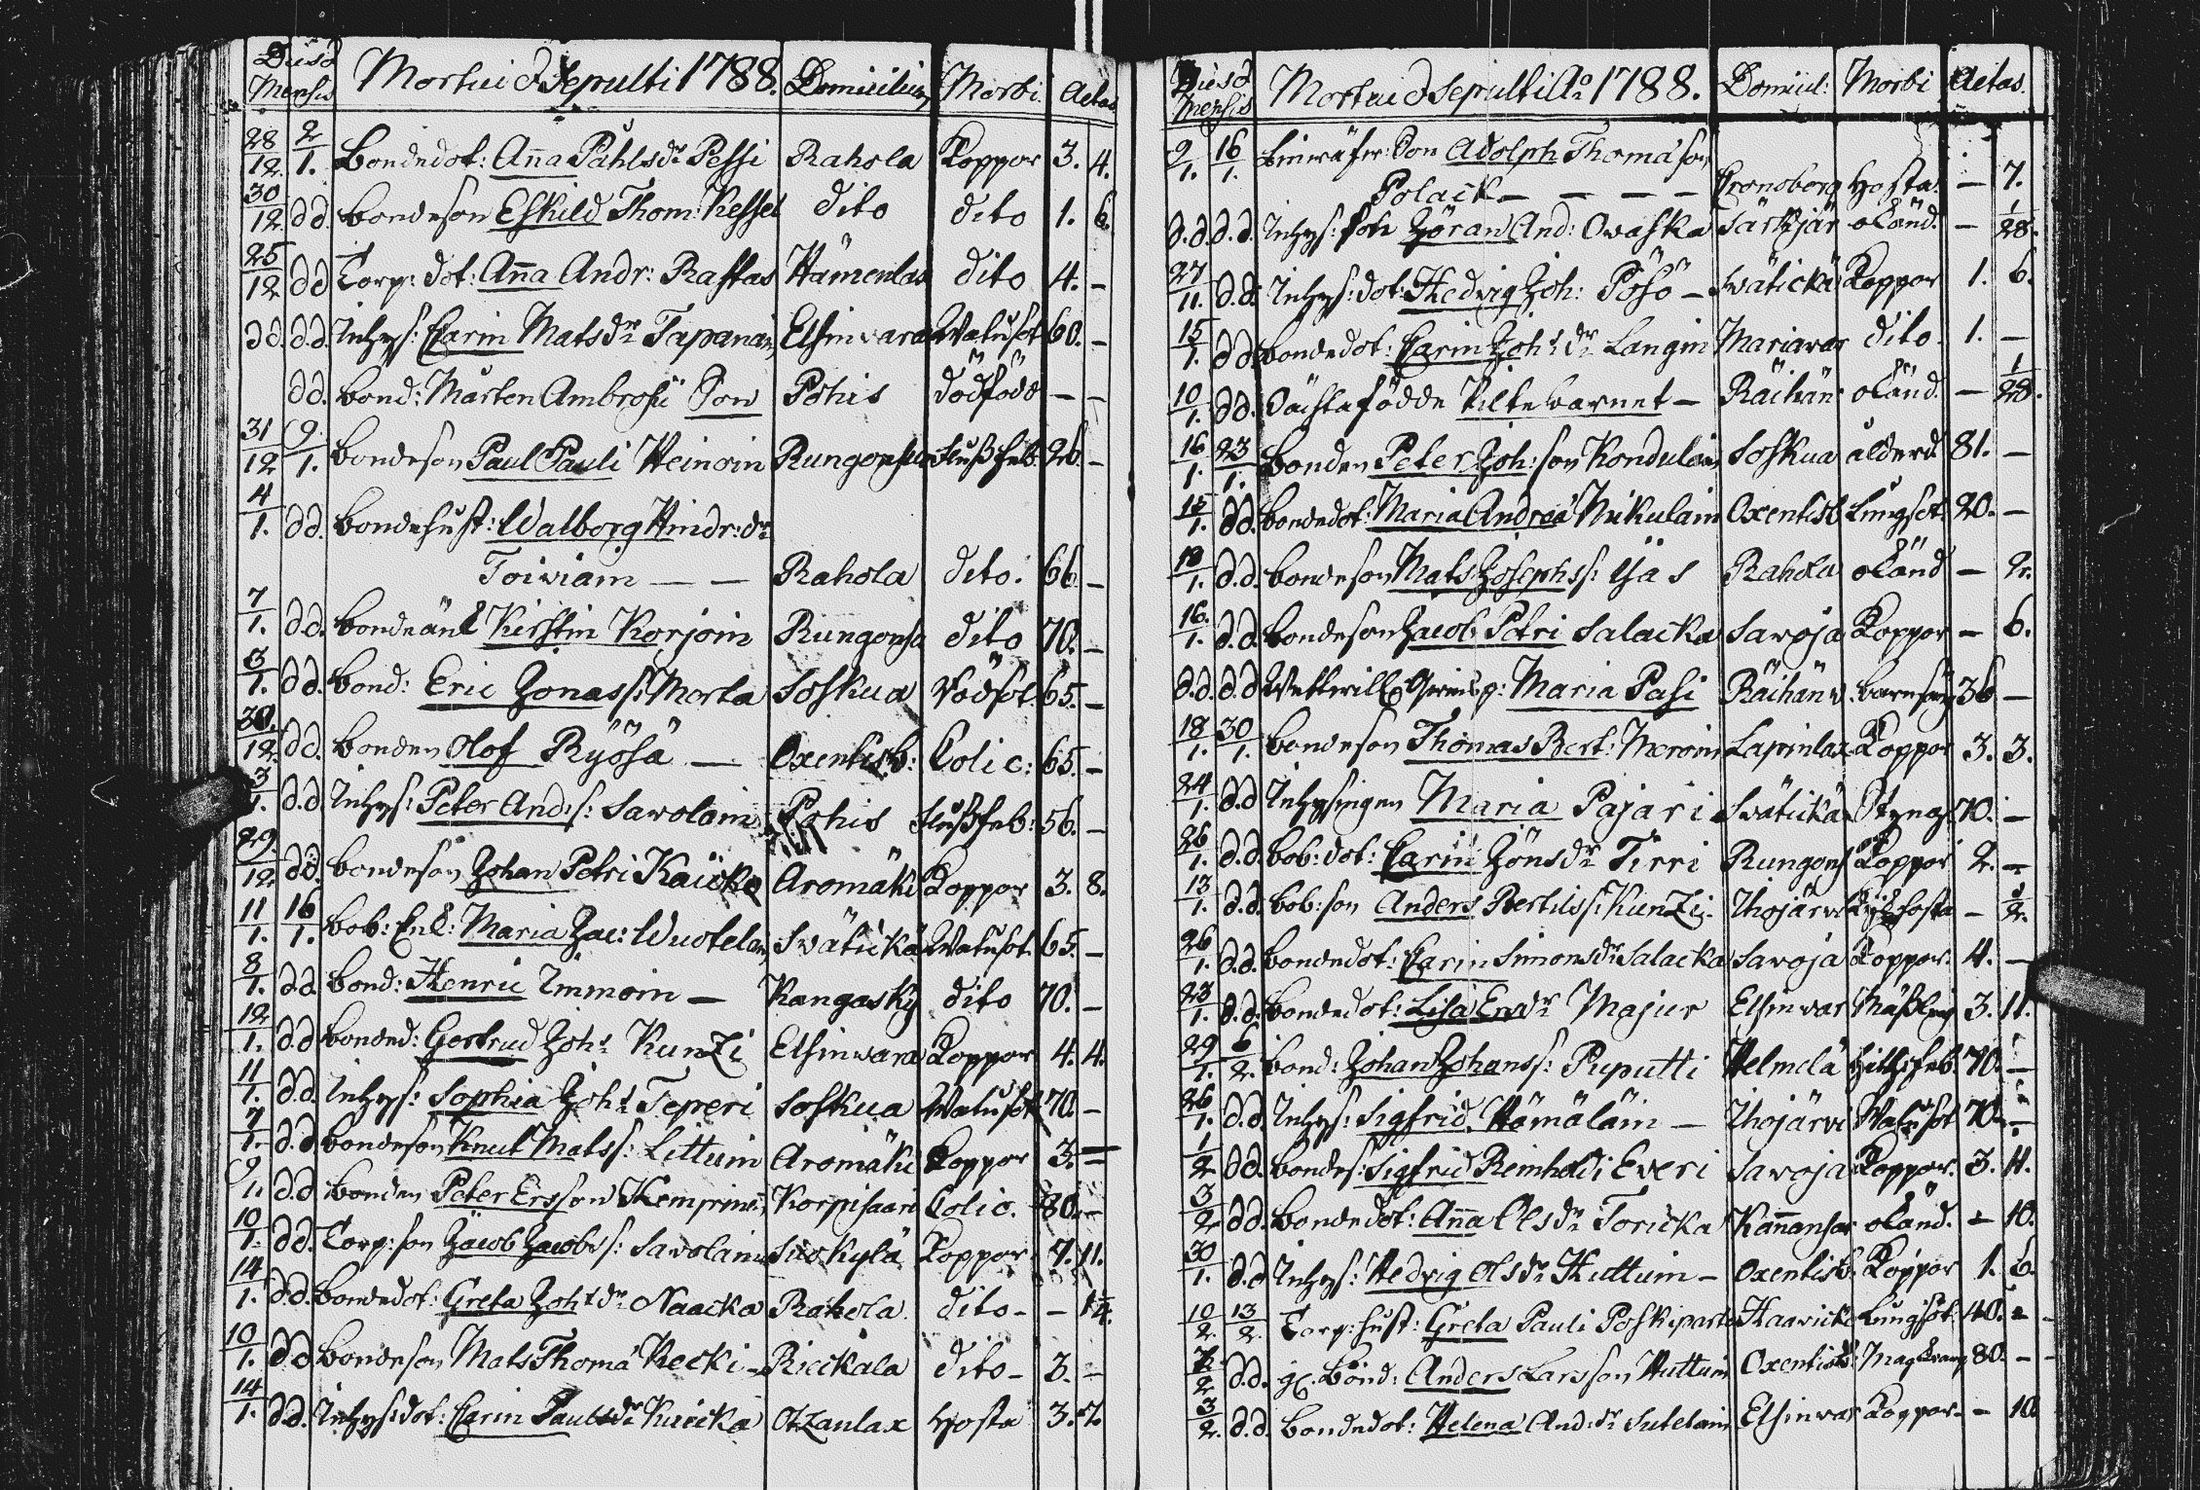 Dies &
Mensis
Mortui & Sepulti 1788. Domicilium Morbi. Aetas
28/12. 2/1. Bondedot: Anna Påhlsdr Pessi Rahola Koppor 3. 4.
30/12 dd. bondeson Eskild Thom: Kesset dito dito 1. 6.
25/12 dd Torp: dot: Anna Andr: Rastas Hämenlax dito 4. -
dd. d.d. Inhys: Carin Matsdr Tapanain Elsinvara Watusot 60. -
dd. bond: Mårten Ambrosii Son Pohis dödfödd - -
31/12 9/1. bondeson Paul Pauli Heinoin Rungonsu Flußfeb: 26. -
4/1. dd. bondehust: Walborg Hindr: dr
Toiviain - - Rahola dito. 66. -
7/1. d.d. bondeänk Kirstin Korjoin Rungonsu dito 70. -
8/1. dd. bond: Eric Jonass: Morta Soskua Rödsot. 65. -
30./12 dd. bonden Olof Ryösä - Oxentisb: Colic: 65. -
3/1. d.d Inhys: Peter And:s: Savolain Pohis Flußfeb: 56. -
29./12. dd. bondeson Johan Petri Käicke Aromäki Koppor 3. 8.
11/1. 16/1. bob: Enk: Maria Jac: Wuotelain Swätickä Watusot. 65. -
8/1. dd. bond: Henric Immoin - Kangasky dito 70. -
12/1. d.d bonded: Gertrud Joh: Kunzi Elsinvara Koppor 4. 4.
11/1. d.d. Inhys: Sophia Joh: Teperi Soskua Watusot 70. -
7/1. d.d bondeson Knut Matss: Littuin Aromäki Koppor 3. -
9/1. d.d bonden Peter Ersson Kemprin Korpisaari Colic. 80. -
10/1. dd. Torp: son Jacob Jacobs: Savolain Suokylä Koppor. 7. 11.
14/1. d.d. bondedot: Greta Joh: dr Naacka Rahola. dito - - 1/4.
10/1. d.d bondeson Mats Thomæ Recki - Rickala dito - 3. -
14/1. d.d. Inhys: dot: Carin Paulsdr Kuicka Ozanlax Hosta 3. 7.
Dies &
Mensis
Mortui & Sepulti Ao 1788. Domicil: Morbi Aetas.
9/1. 16/1. son Adolph Thomæ son
Polack - - - - Cronoborg Hosta. - 7.
d.d. d.d. Inhys: son Jöran And: Ovaska Särkjär okänd. - 1/28.
27/11. d.d. Inhys: dot: Hedvig Joh: Pösö - Swätickä Koppor 1. 6.
15/1. dd. bondedot: Carin Joh: dr Langin Mariavar dito. 1. -
10/1. dd. Oächtafödde Piltebarnet - Räihän okänd. - 1/28.
16/1. 23/1. bonden Peter Joh: son Kondulain Soskua ålderd. 81. -
15/1. dd. bondedot: Maria Andreæ Nikulain Oxentisb Lungsot. 20. -
18/1. d.d. bondeson Mats Josephss: Yäs Rahola okänd - 2.
16./1. d.d. bondeson Jacob Petri Salacka Savoja Koppor - 6.
d.d. d.d Maria Pasi Räihän v. barnsäng 36 -
18/1. 30/1. bondeson Thomas Bert: Meroin Lapinlax Koppor 3. 3.
24/1. d.d Inhysingen Maria Pajari Swätickä Styng. 70. -
26/1. d.d. bob: dot: Carin Jönsdr Tirri Rungons Koppor 2. -
13/1. d.d. bob: son Anders Bertilss: Kunzi. Ihojärvi Kikhosta - 1/2.
26/1. d.d. bondedot: Carin Simonsdr Salacka Savoja Koppor. 4. -
23/1. d.d. bondedot: Lisa Ersdr Majur Elsinvar Mäßling 3. 11.
29/1. 6/2. bond: Johan Johanss: Puputti Helmelä Hitsfeb. 70. -
26/1. d.d. Inhys: Sigfrid Hämäläin - Ihojärvi Watusot 70. -
1/2 dd. bondes: Sigfrid Reinholdi Everi Savoja Koppor. 3. 11.
3/2 dd. bondedot: Anna Olsdr Toricka Kannansar okänd. - 10.
30/1. d.d Inhys: Hedvig Olsdr Huttuin - Oxentisb. Koppor 1. 6.
10/2. 13/2. Torp: hust: Greta Pauli Poskiparta Haaricke Lungsot. 40. -
7/2 d.d. gl. Bond: Anders Larsson Huttuin Oxentisb: Magkramp 80. -
3/2. d.d. bondedot: Helena And: dr Sutelain Elsinvar Koppor. - 10.